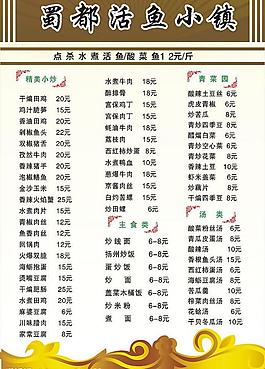 蜀都活鱼小镇
点杀水煮活鱼/酸菜鱼12元/斤
精美小炒
干煸田鸡 20元
香辣田鸡 20元
香油田鸡 20元
剁椒鱼头 22元
双椒猪舌 20元
孜然牛肉 20元
香辣牛肉 20元
泡椒鳝鱼 20元
金沙玉米 15元
香辣火焰蟹 25元
水煮肉片 15元
青椒肉丝 15元
鱼香肉丝 12元
回锅肉 12元
火爆双脆 18元
海蛎抱蛋 15元
烧椒豆腐 15元
干煸肥肠 25元
水煮田鸡 20元
麻婆豆腐 6元
川味腊肉 15元
家常豆腐 8元
水煮牛肉 18元
酸排骨 18元
宫保鸡丁 15元
宫保肉丁 15元
蚝油牛肉 18元
红枣肉 15元
西红柿炒蛋 8元
水煮鸭血 10元
葱爆牛肉 18元
京酱肉丝 15元
白灼苦螺 15元
炒田螺 6元
主食类
炒线面 6-8元
扬州炒饭 6-8元
蛋炒饭 6-8元
炒面 6-8元
盖菜木桶饭 6-8元
炒米粉 6-8元
煮面 6-8元
青菜园
酸辣土豆丝 8元
虎皮青椒 8元
炒苦瓜 8元
青炒四季豆 8元
醋熘白菜 8元
青炒空心菜 8元
青炒花菜 8元
香辣土豆丝 8元
香辣小豆 10元
虾米盖菜 8元
炒藕片 8元
干煸四季豆 8元
汤类
酸菜粉丝汤 7元
青瓜皮蛋汤 8元
酸辣汤 10元
香根鱼头汤 15元
西红柿蛋汤 8元
海蛎豆腐汤 8元
苦瓜羹 8元
榨菜肉丝汤 8元
花蛤汤 6元
干贝冬瓜汤 10元